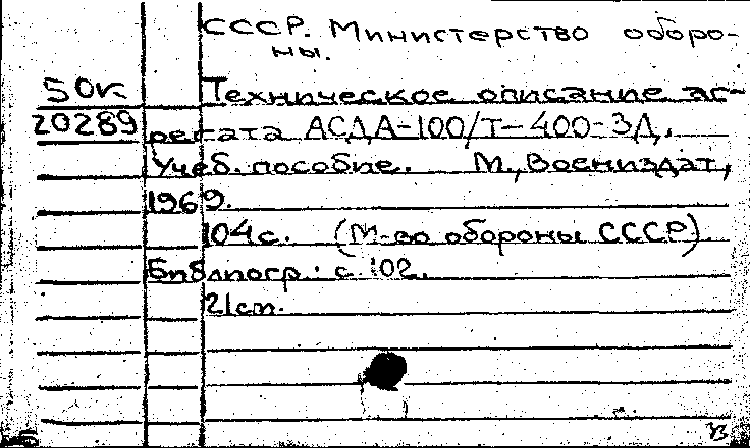 СССР. Министерство оборо-
ны.
50к Техническое описание аг-
20289 регата АСДА-100/Т-400-3Д.
Учеб. пособие. М., Воениздат,
1969.
104с. (М-во обороны СССР)
Библиогр.: с 102.
21см.